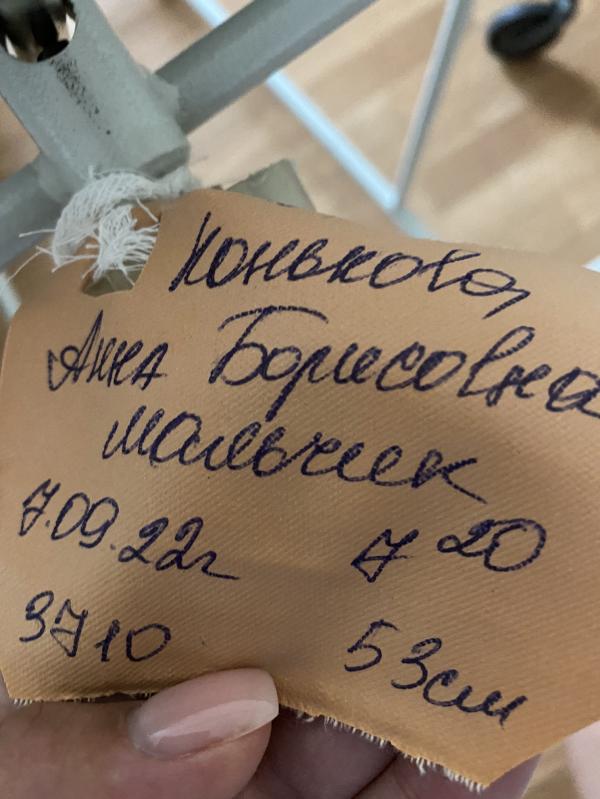 Конькова
Анна Борисовна
мальчик
7.09.22г 7 20
3710 53см